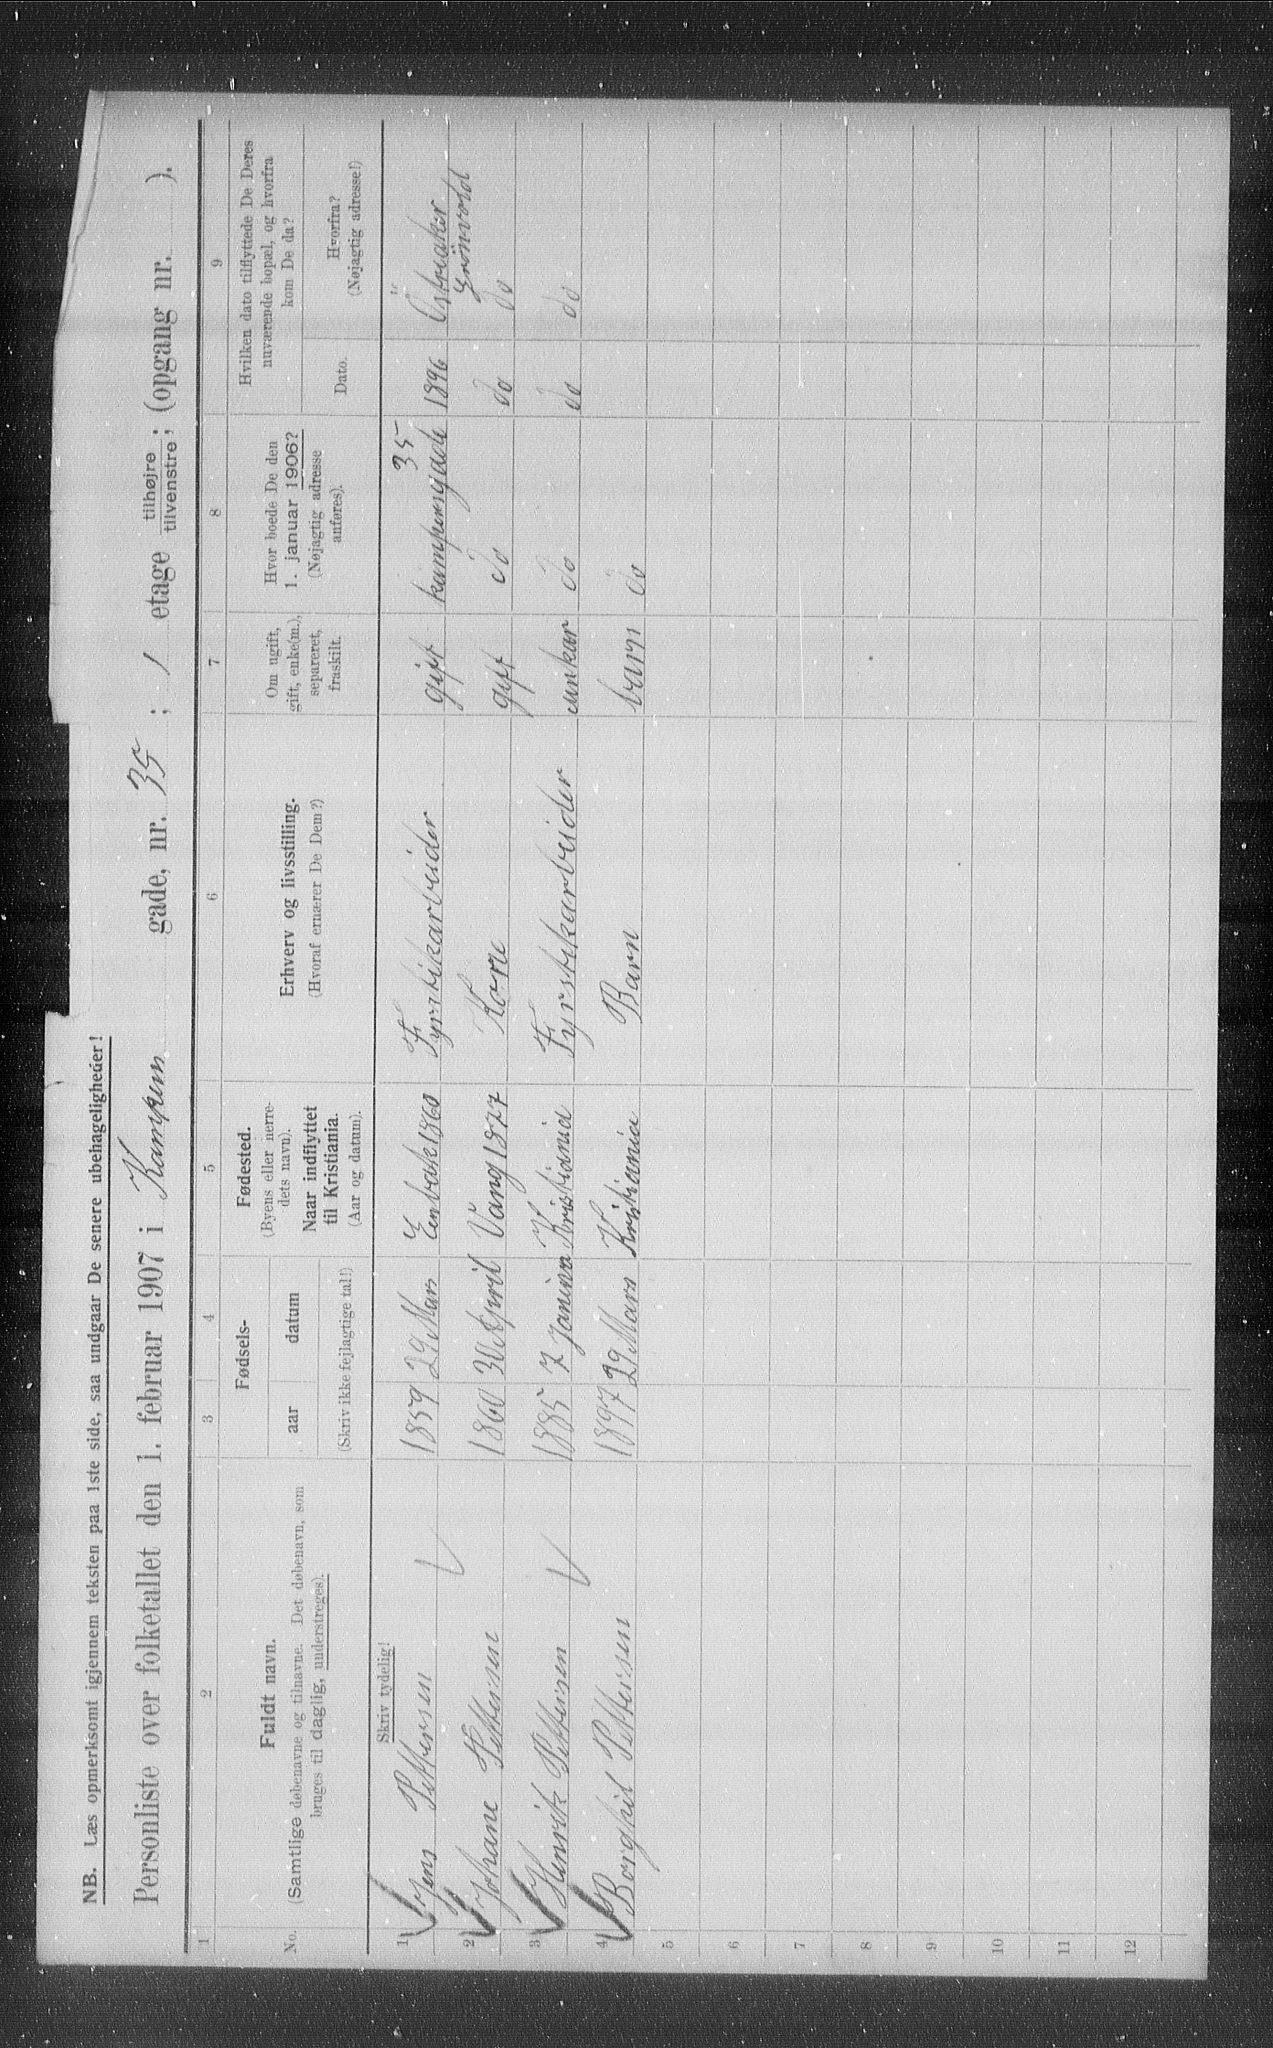 NB. Læs opmerksomt igjennem teksten paa 1ste side, saa undgaar De senere ubehageligheder!
Personliste over folketallet den 1. februar 1907 i Kampens gade, nr. 35; 1 etage tilhøjre tilvenstre; (opgang nr. ).
1 2 3 4 5 6 7 8 9
No.
Fuldt navn.
(Samtlige døbenavne og tilnavne. Det døbenavn, som
bruges til daglig, understreges).
Fødsels-
aar datum
(Skriv ikke fejlagtige tal!)
Fødested.
(Byens eller herre-
dets navn).
Naar indflyttet
til Kristiania.
(Aar og datum).
Erhverv og livsstilling.
(Hvoraf ernærer De Dem?)
Om ugift,
gift, enke(m.),
separeret,
fraskilt.
Hvor boede De den
1. januar 1906?
(Nøjagtig adresse
anføres).
Hvilken dato tilflyttede De Deres
nuværende bopæl, og hvorfra
kom De da?
Dato.
Hvorfra?
(Nøjagtig adresse!)
Skriv tydelig!
1 Jens Pettersen 1859 29 Mars Enebak 1860 Fyrstikarbeider gift kampensgade 35 1896 Østreaker Grönvold
2 Johane Pettersen 1860 30 April Vang 1877 Kone gift do do do
3 Henrik Pettersen 1885 7 Januar Kristiania Fyrstikarbeider unkar do do do
4 Borghil Pettersen 1897 29 Mars Kristiania Barn barn do
5
6
7
8
9
10
11
12